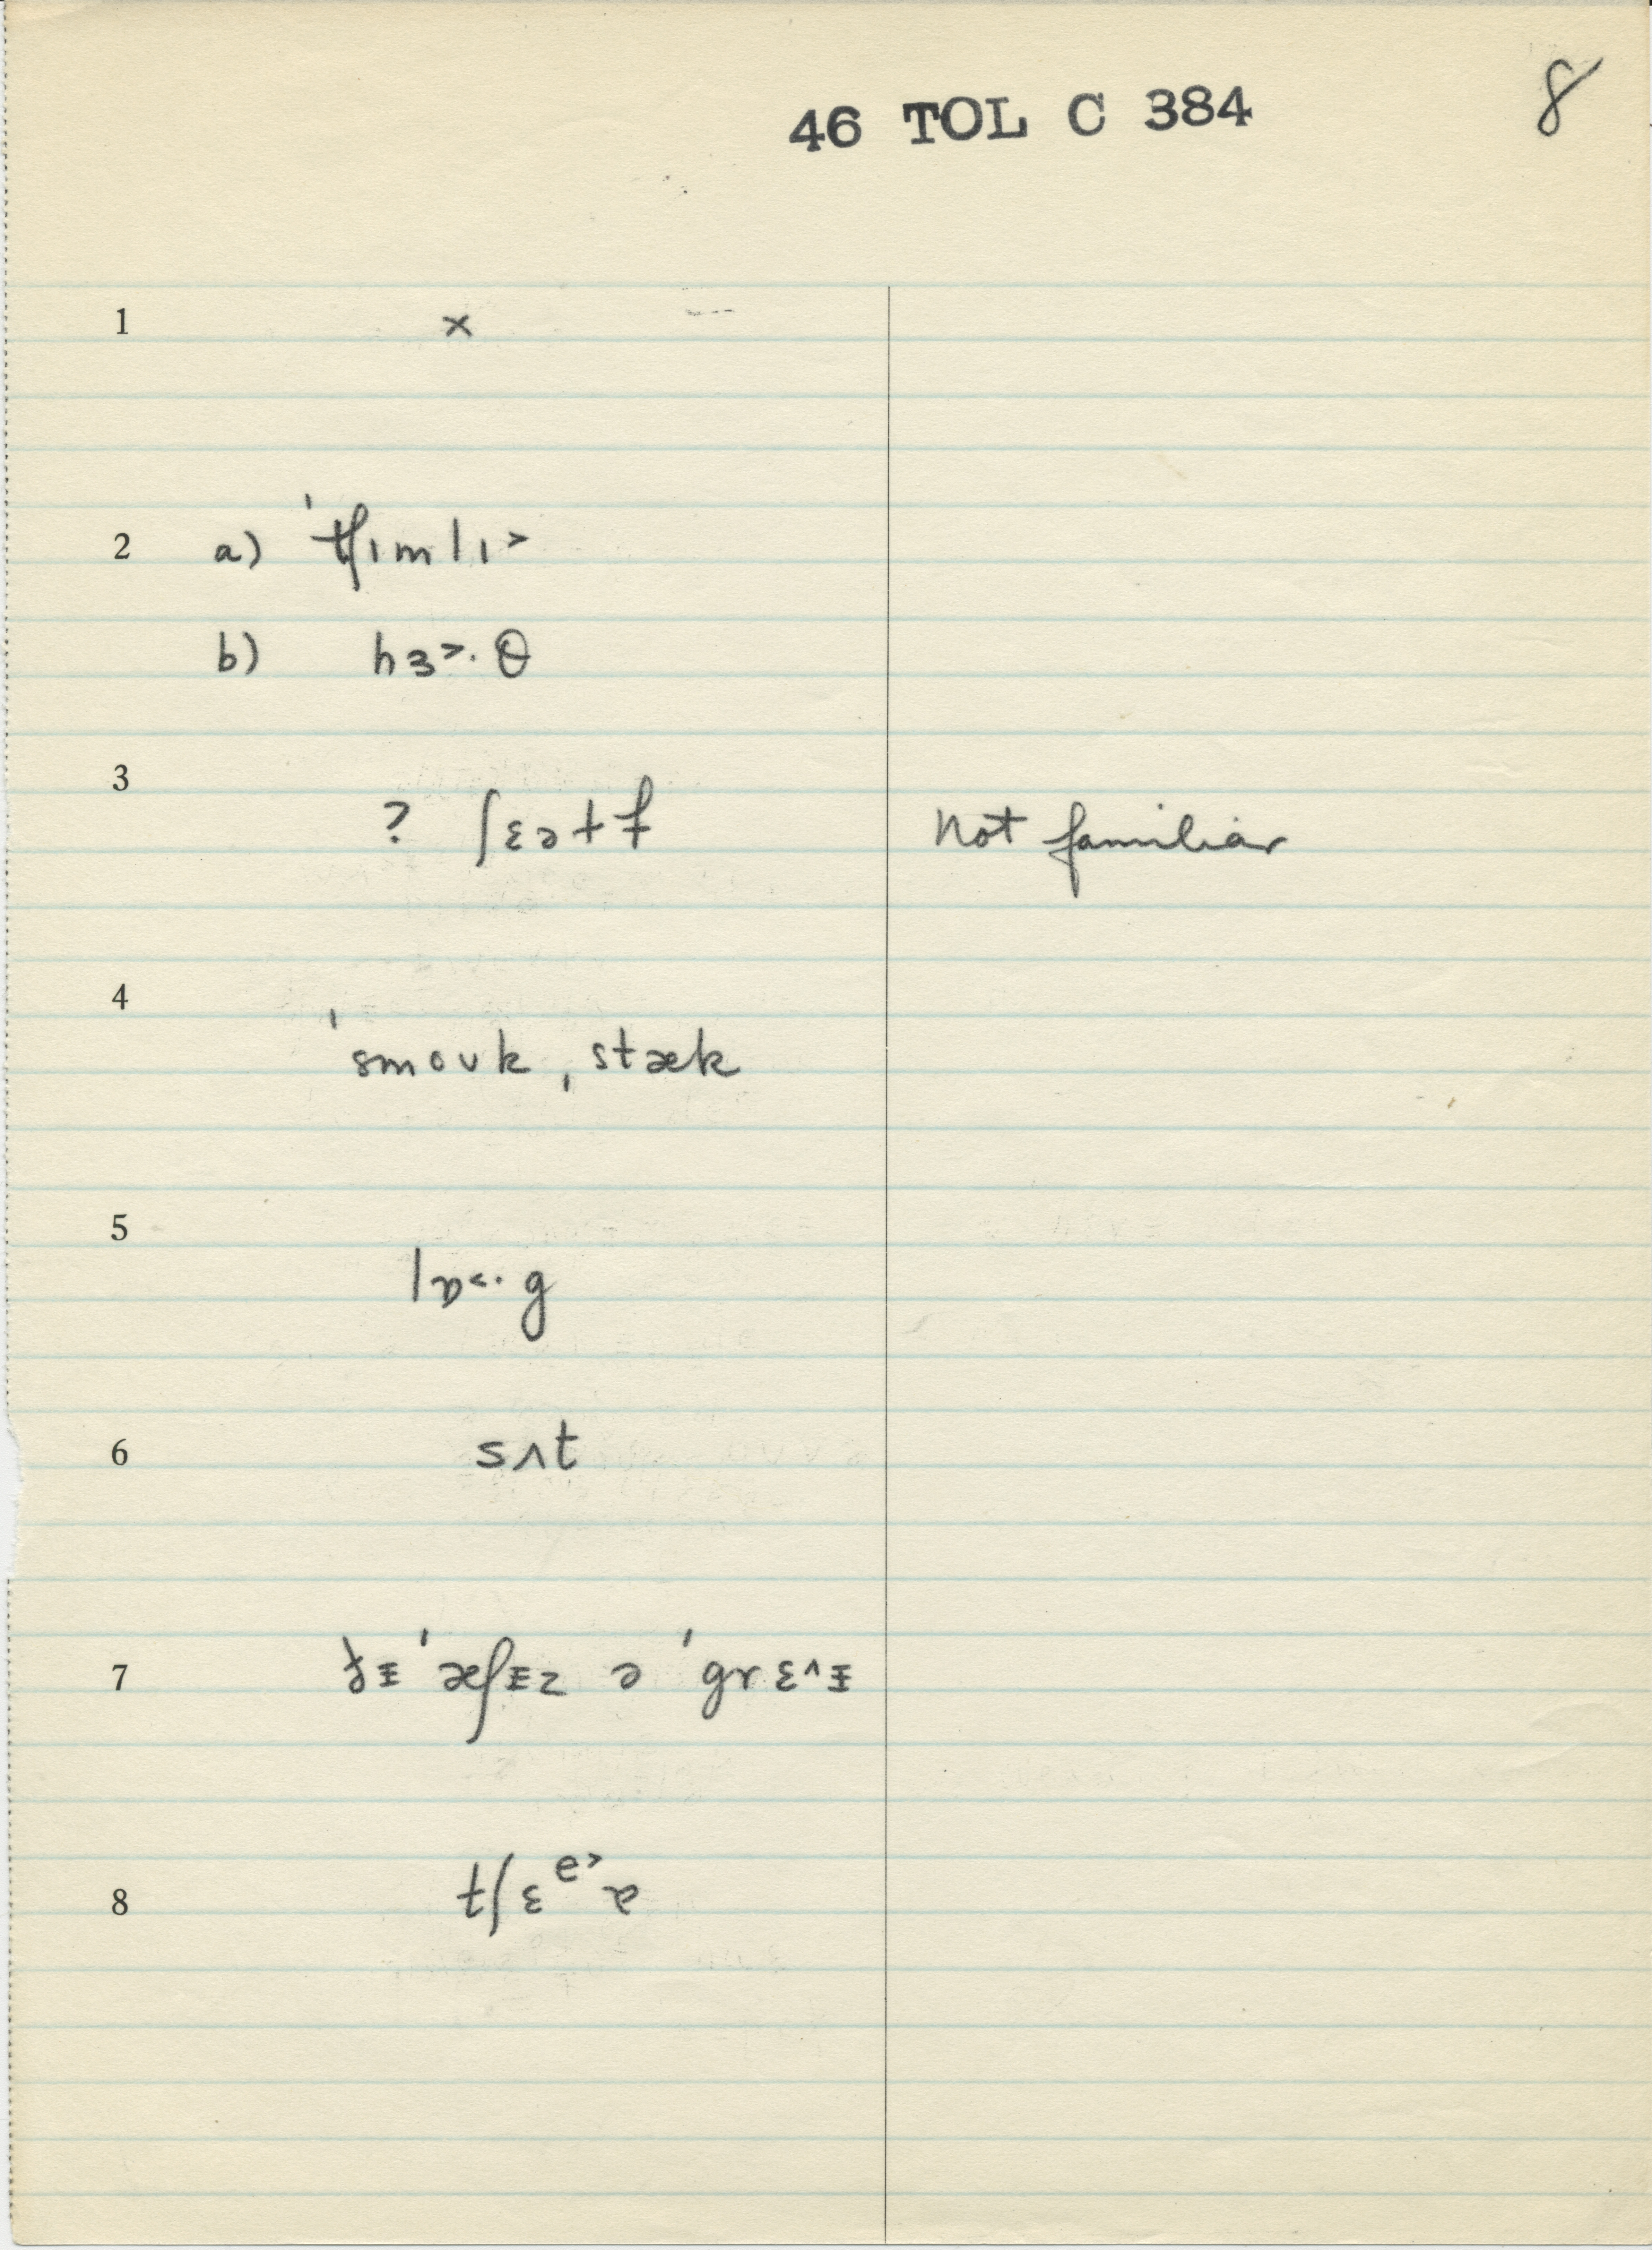 46 TOL C 384
8
1 ×
2 a) ˈtʃɪmlɪ˃
b) hɜ˃·θ
3 ? ʃɛətf Not familiar
4 ˈsmoʊk ˌstæk
5 lɒ˂·g
6 sʌt
7 ˈæʃɨz ə ˈgrɛ˄ɨ
8 tʃɛ